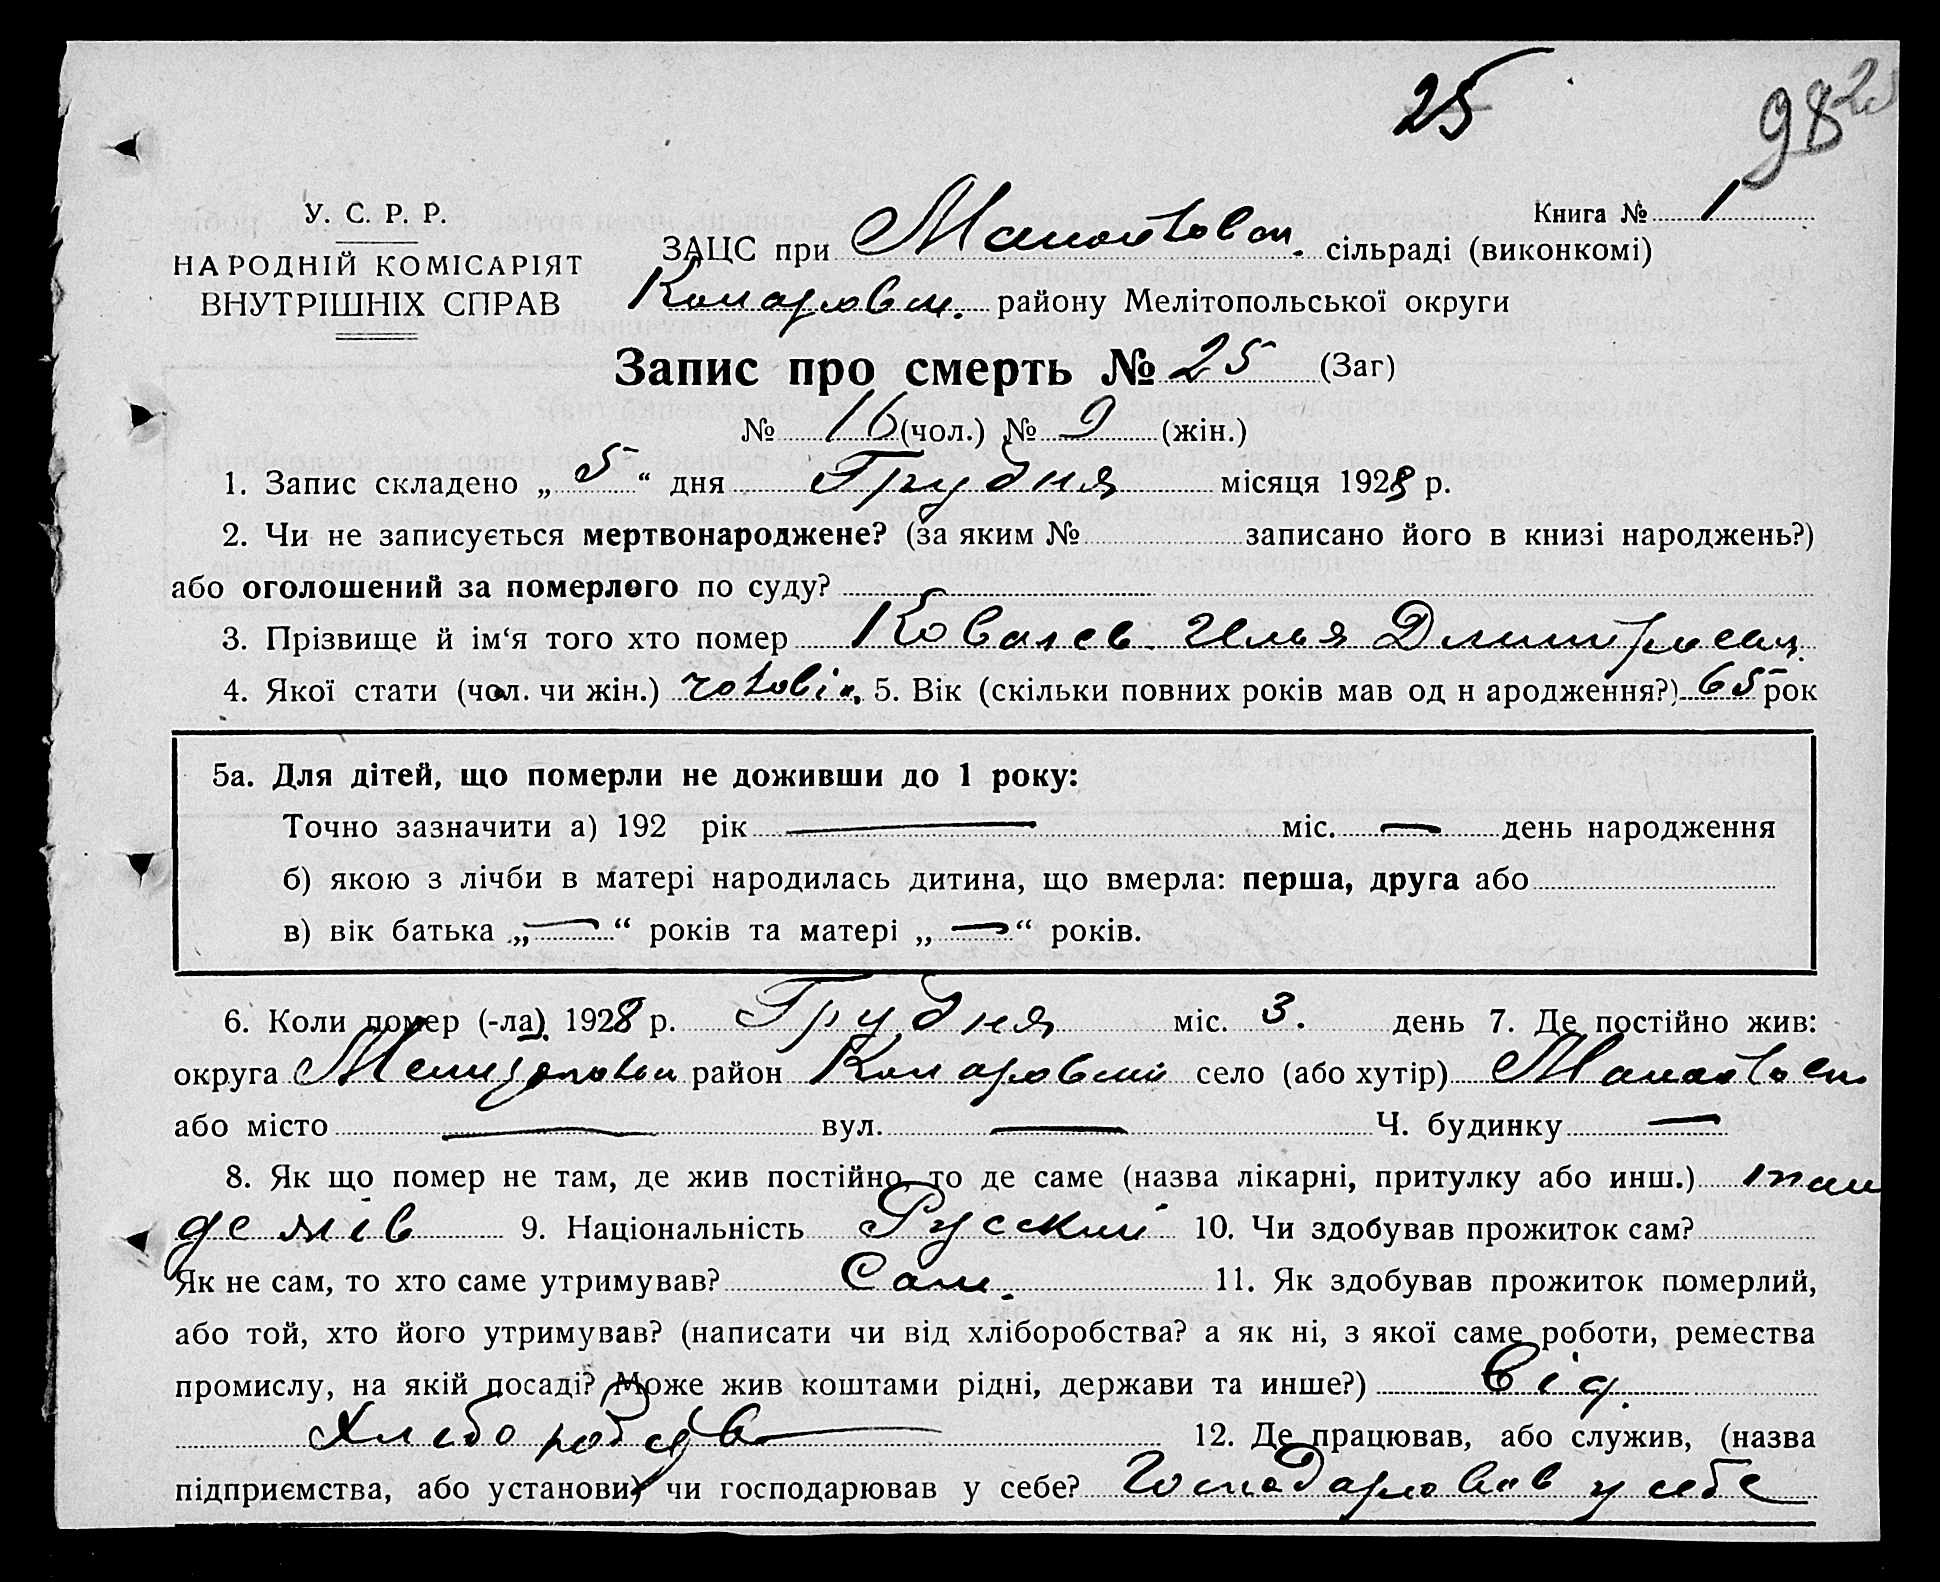 25
98
У. С. Р. Р.
НАРОДНІЙ КОМІСАРІЯТ
ВНУТРІШНІХ СПРАВ
Книга № 1
ЗАЦС при сільраді (виконкомі)
району Мелітопольської округи
Запис про смерть № 25 (Заг)
№ 16 (чол.) № 9 (жін.)
1. Запис складено „ 5 “ дня Грудня місяця 1928 р.
2. Чи не записується мертвонароджене? (за яким № записано його в книзі народжень?)
або оголошений за померлого по суду?
3. Прізвище й ім‘я того хто помер Ковалев Илья Дмитриевич
4. Якої стати (чол. чи жін.) чоловік. 5. Вік (скільки повних років мав од н ародження?) 65 рок
5а. Для дітей, що померли не доживши до 1 року:
Точно зазначити а) 192 рік — міс. — день народження
б) якою з лічби в матері народилась дитина, що вмерла: перша, друга або
в) вік батька „ — “ років та матері „ — “ років.
6. Коли помер (-ла) 1928 р. Грудня міс. 3. день 7. Де постійно жив:
округа район село (або хутір)
або місто — вул. — Ч. будинку —
8. Як що помер не там, де жив постійно, то де саме (назва лікарні, притулку або инш.) там
де жив 9. Національність Русский 10. Чи здобував прожиток сам?
Як не сам, то хто саме утримував? Сам. 11. Як здобував прожиток померлий,
або той, хто його утримував? (написати чи від хліборобства? а як ні, з якої саме роботи, ремества
промислу, на якій посаді? Може жив коштами рідні, держави та инше?) від
12. Де працював, або служив, (назва
підприємства, або установи) чи господарював у себе? Господарював у себе